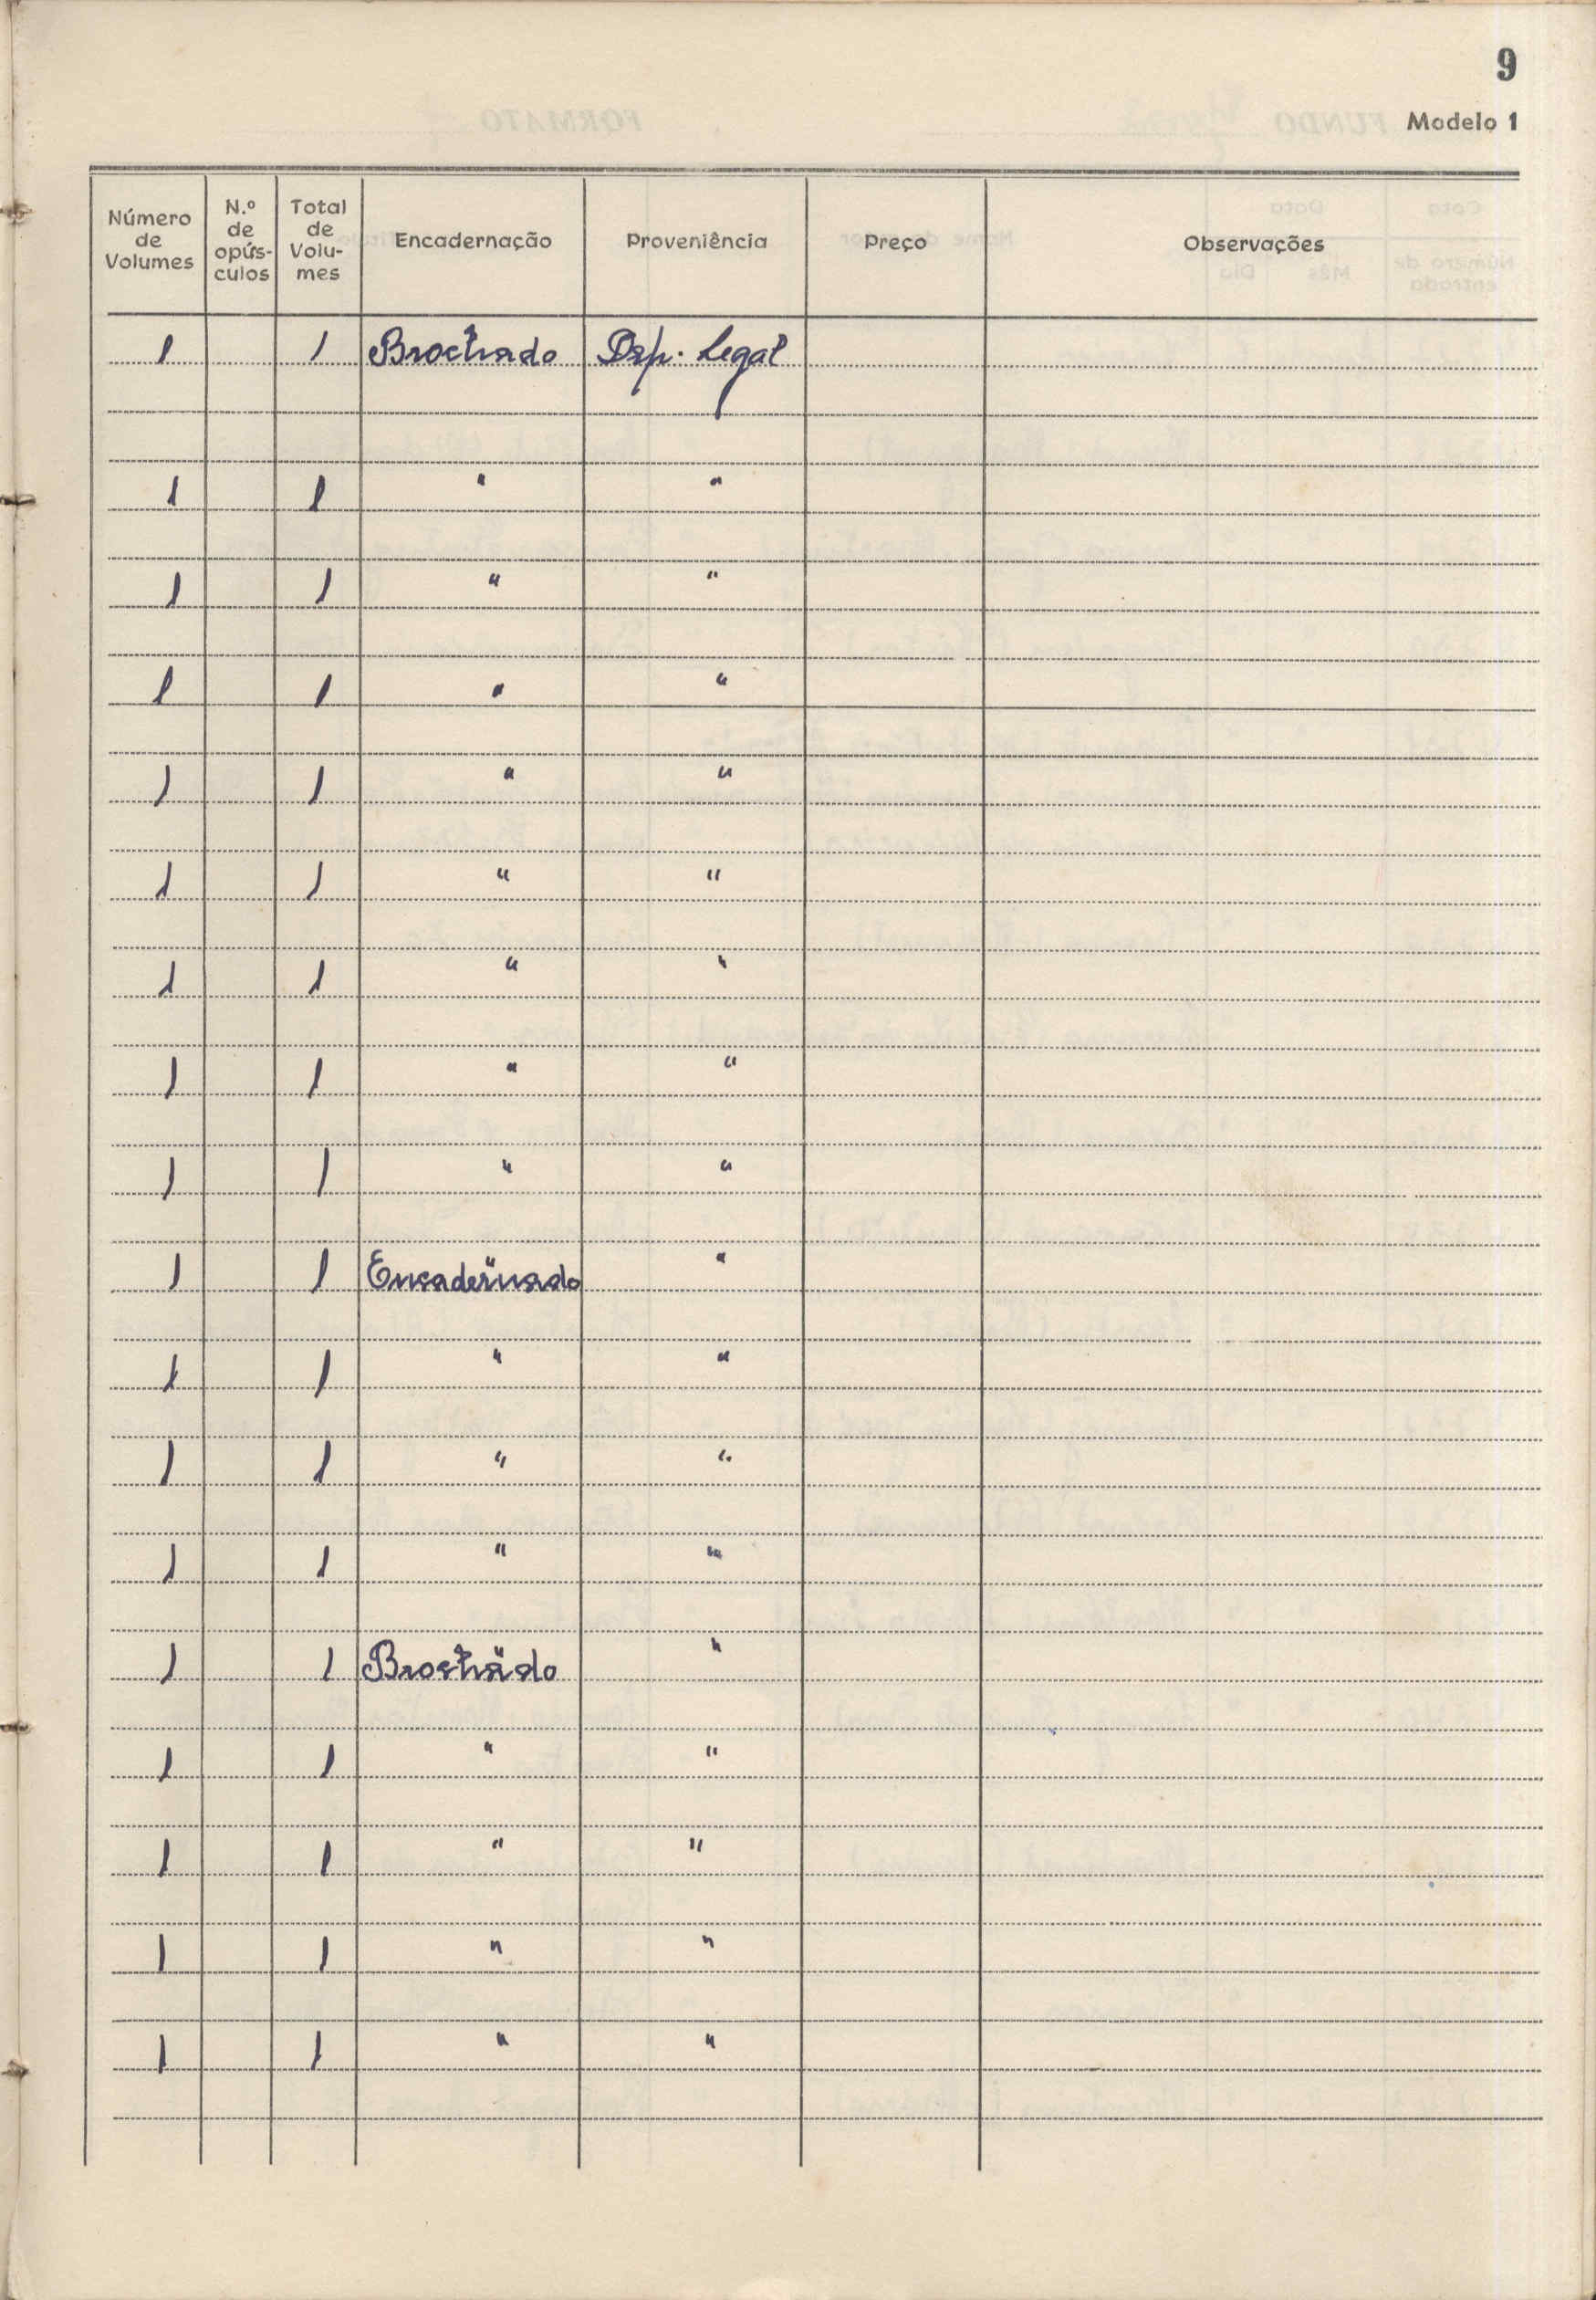 9
Modelo 1
Número de Volumes | N.º de opúsculos | Total de Volumes | Encadernação | Proveniência | Preço | Observações
1 | | 1 | Brochado | Dep. Legal
1 | | 1 | " | "
1 | | 1 | " | "
1 | | 1 | " | "
1 | | 1 | " | "
1 | | 1 | " | "
1 | | 1 | " | "
1 | | 1 | " | "
1 | | 1 | " | "
1 | | 1 | Encadernado | "
1 | | 1 | " | "
1 | | 1 | " | "
1 | | 1 | " | "
1 | | 1 | Brochado | "
1 | | 1 | " | "
1 | | 1 | " | "
1 | | 1 | " | "
1 | | 1 | " | "